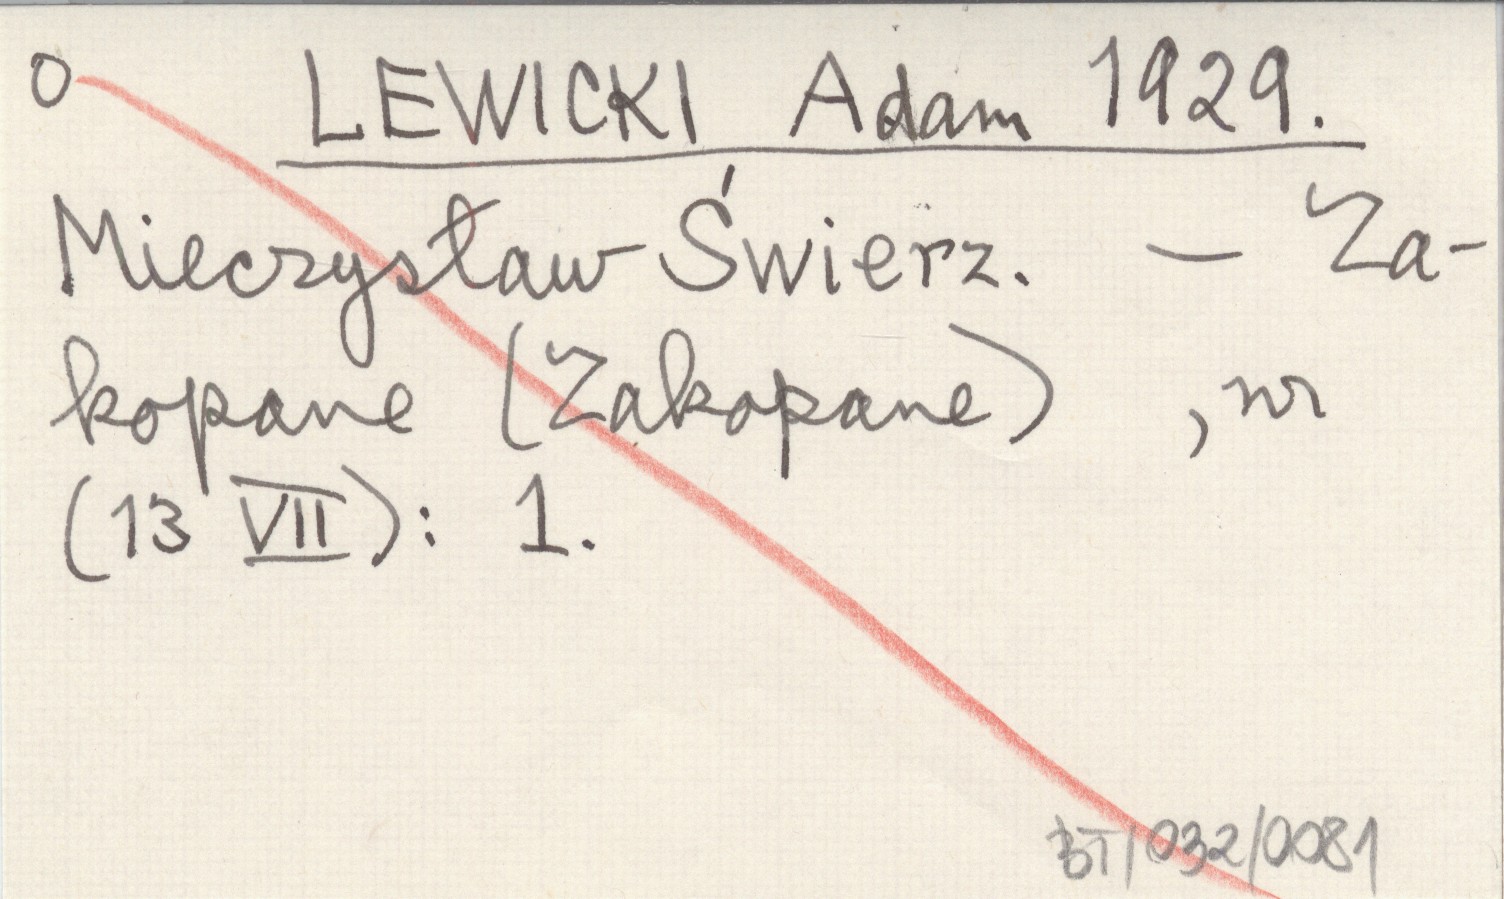 O LEWICKI Adam 1929.
Mieczysław Świerz. — Za-
kopane (Zakopane) , nr
(13 VII): 1.
BT/032/0081